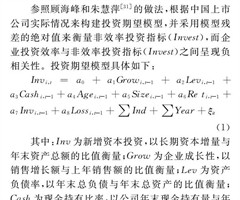 参照顾海峰和朱慧萍[31]的做法,根据中国上市
公司实际情况来构建投资期望模型,并采用模型残
差的绝对值来衡量非效率投资指标(Invest),而企
业投资效率与非效率投资指标(Invest)之间呈现负
相关性。投资期望模型具体如下:
Inv_{i,t} = a_0 + a_1Grow_{i,t-1} + a_2Lev_{i,t-1} +
a_3Cash_{i,t-1} + a_4Age_{i,t-1} + a_5Size_{i,t-1} + a_6Re t_{i,t-1} +
a_7Inv_{i,t-1} + a_8Loss_{i,t-1} + ∑Ind + ∑Year + ξ_{it}
(1)
其中:Inv为新增资本投资,以长期资本增量与
年末资产总额的比值衡量;Grow为企业成长性,以
销售增长额与上年销售额的比值衡量;Lev为资产
负债率,以年末总负债与年末总资产的比值衡量;
Cash为现金持有比率,以公司年末现金持有量与年